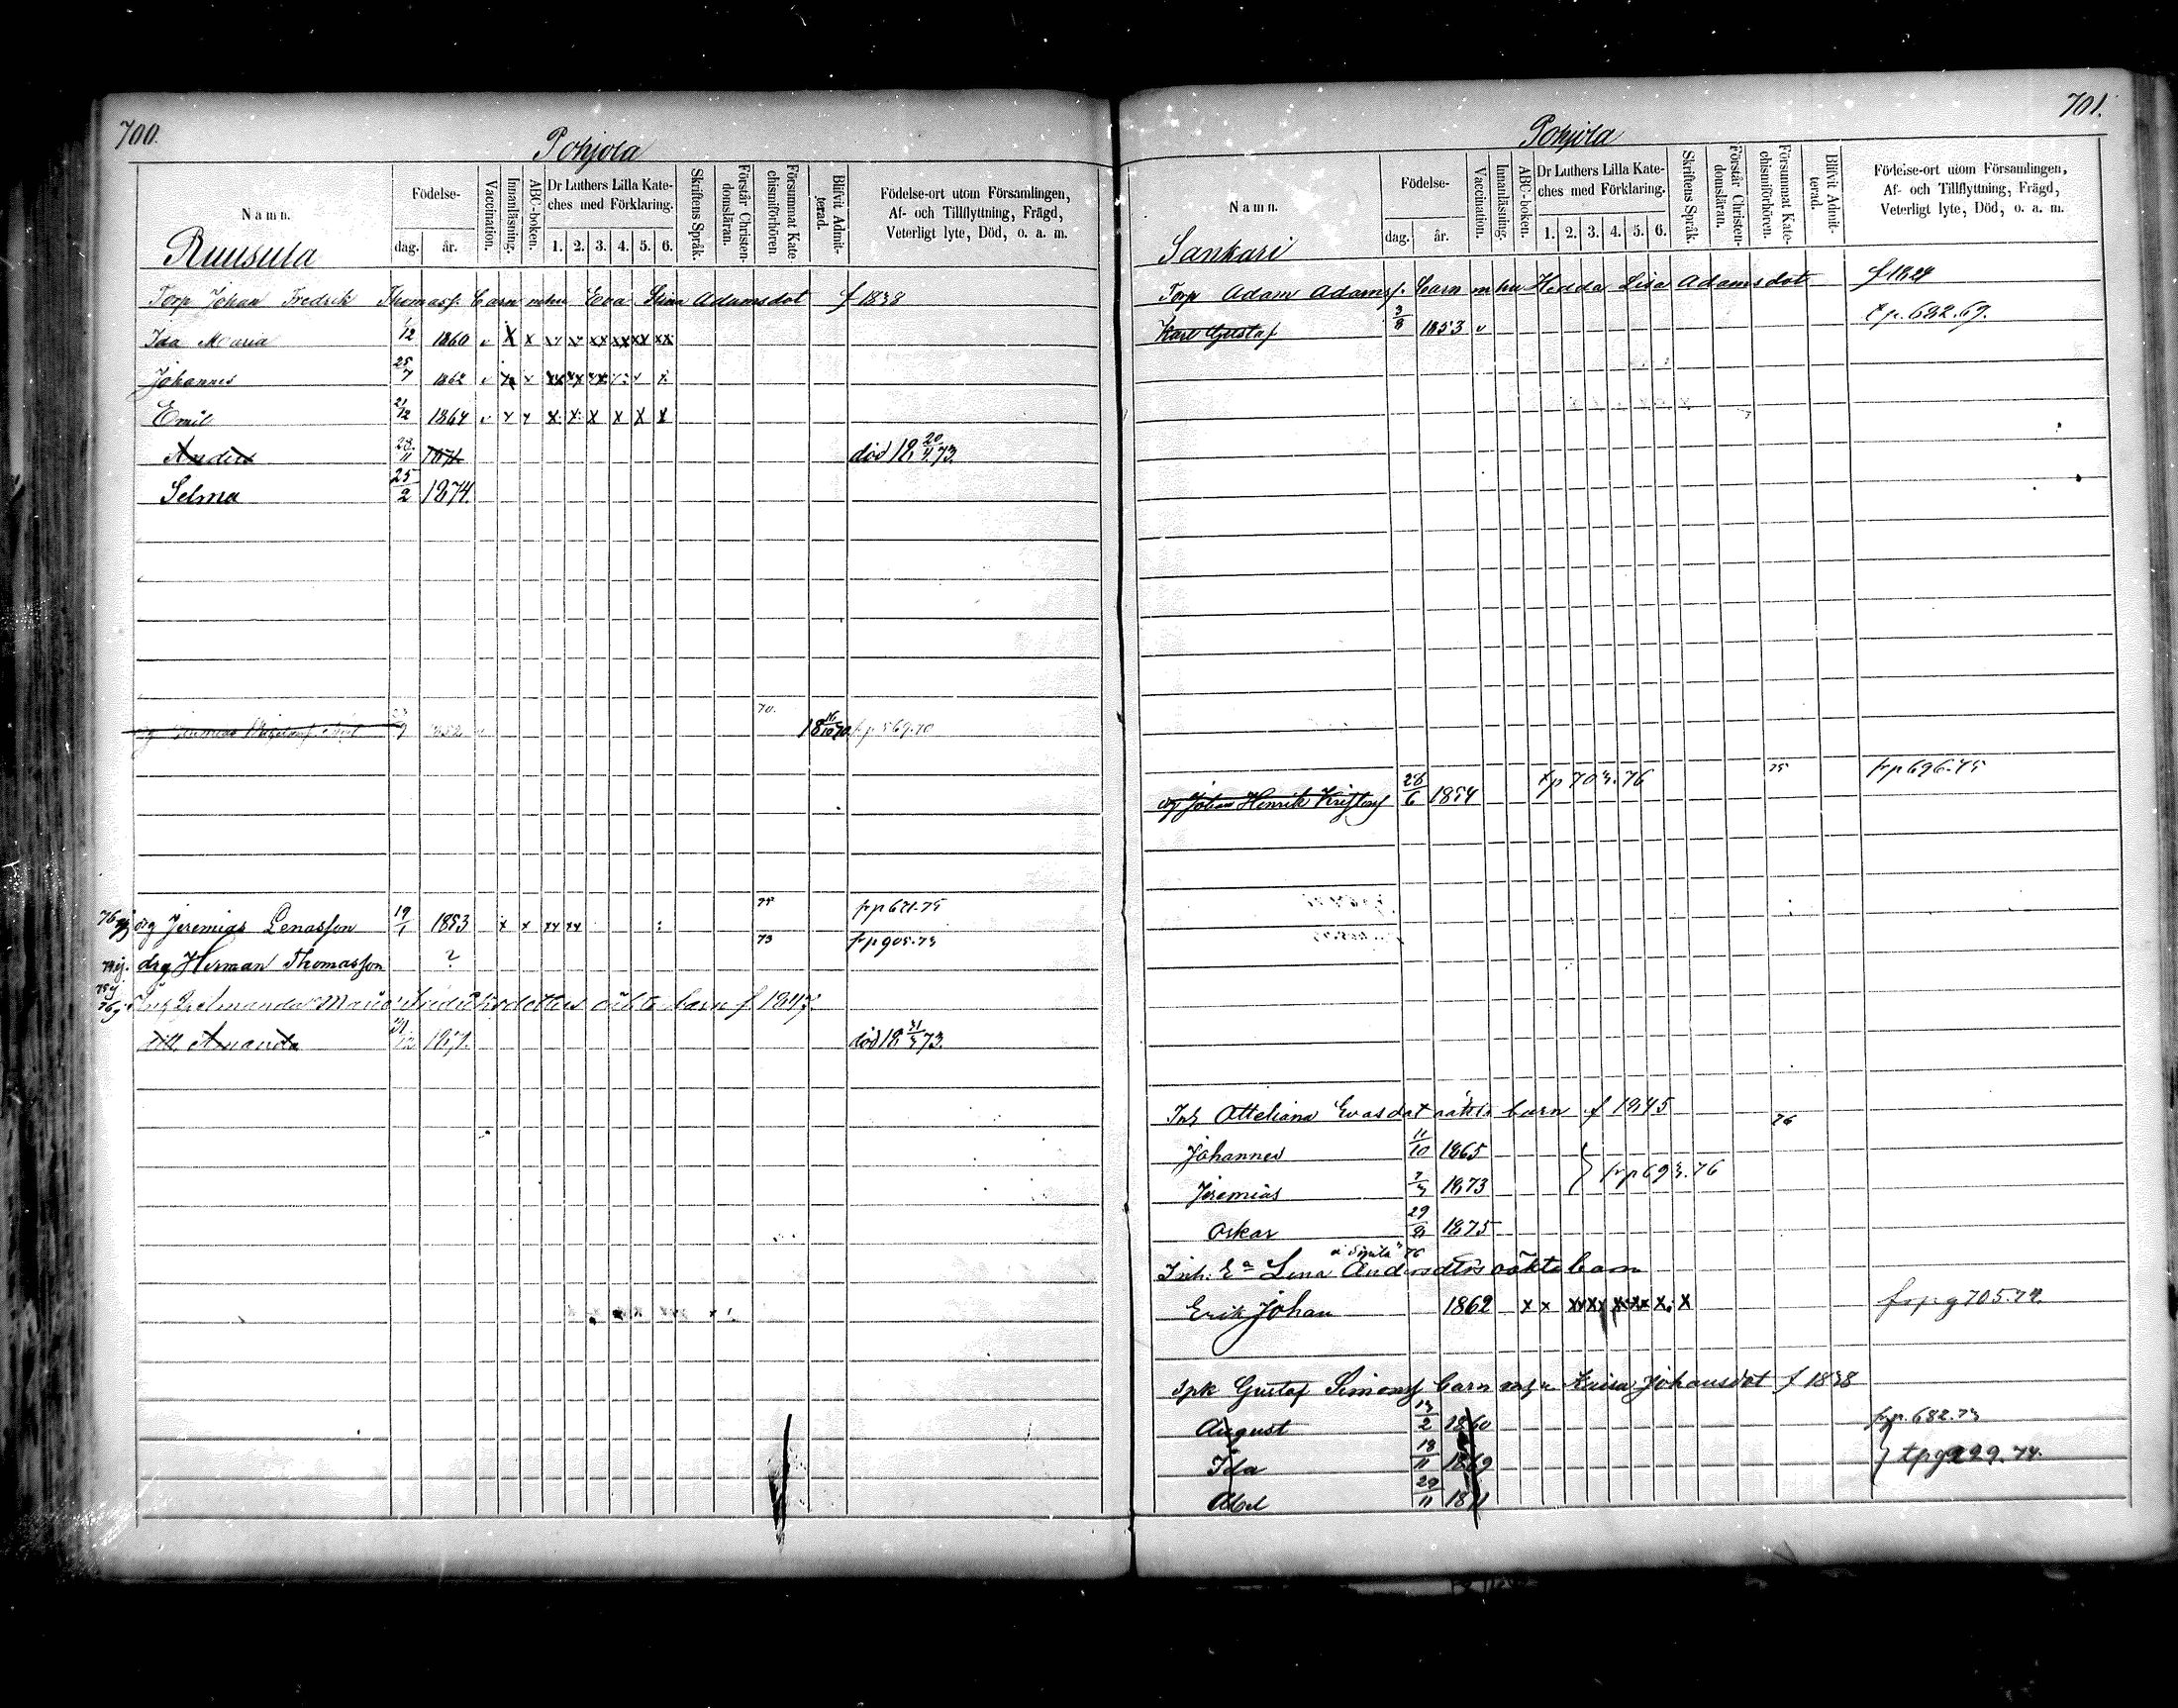 700.
Pohjola
Namn.
Födelse-
dag.
år.
Vaccination.
Innanläsning.
ABC-boken.
Dr Luthers Lilla Kate-
ches med Förklaring.
1. 2. 3. 4. 5. 6.
Skriftens Språk.
Förstår Christen-
domsläran.
Försummat Kate-
chismiförhören
Blifvit Admit-
terad.
Födelse-ort utom Församlingen,
Af- och Tillflyttning, Frägd,
Veterligt lyte, Död, o. a. m.
Ruusula
Torp Johan Fredrik Thomass. barn m hu Eva Stina Adamsdot f 1838
Ida Maria 1/12 1860 v x x
Johannes 25/7 1862 v
Emil 21/12 1864 v x x x x x x
28/11 1871 död 18 20/4 73.
Selma 25/2 1874.
70. 18 16/10 70 fr p 569.70
76 drg Jeremias Lenasson 19/1 1853 x x xx xx 75 frp 671.75
74 ej. drg Herman Thomasson ? 73 frp 905.73
Amanda Maria Fredriksdotters oäkta barn f 1847.
till Amanda 31/12 1871. död 18 31/3 73.
701.
Pohjola
Namn.
Födelse-
dag.
år.
Vaccination.
Innanläsning.
ABC-boken.
Dr Luthers Lilla Kate-
ches med Förklaring.
1. 2. 3. 4. 5. 6.
Skriftens Språk.
Förstår Christen-
domsläran.
Försummat Kate-
chismiförhören.
Blifvit Admit-
terad.
Födelse-ort utom Församlingen,
Af- och Tillflyttning, Frägd,
Veterligt lyte, Död, o. a. m.
Sankari
Torp Adam Adamss. barn m hu Hedda Lisa Adamsdot f 1829
Karl Gustaf 3/8 1853 v t p. 682.69.
drg Johan Henrik Kristerss 28/6 1854 tp 703.76 75 frp 696.75
Inh Otteliana Evasdot oäkta barn f 1845 76
Johannes 11/10 1865
Jeremias 7/3 1873 } frp 693.76
Oskar 29/8 1875
Inh. Ea Lena Andersdtrs oäkta barn
Erik Johan 1862 x x xx xx xx xx x x frpg 705.74.
Spk Gustaf Simonss barn m h Kaisa Johansdot f 1838
August 13/2 1860 frp. 682.73
Ida 18/11 1869 } tpg 299.74.
Abel 29/11 1871